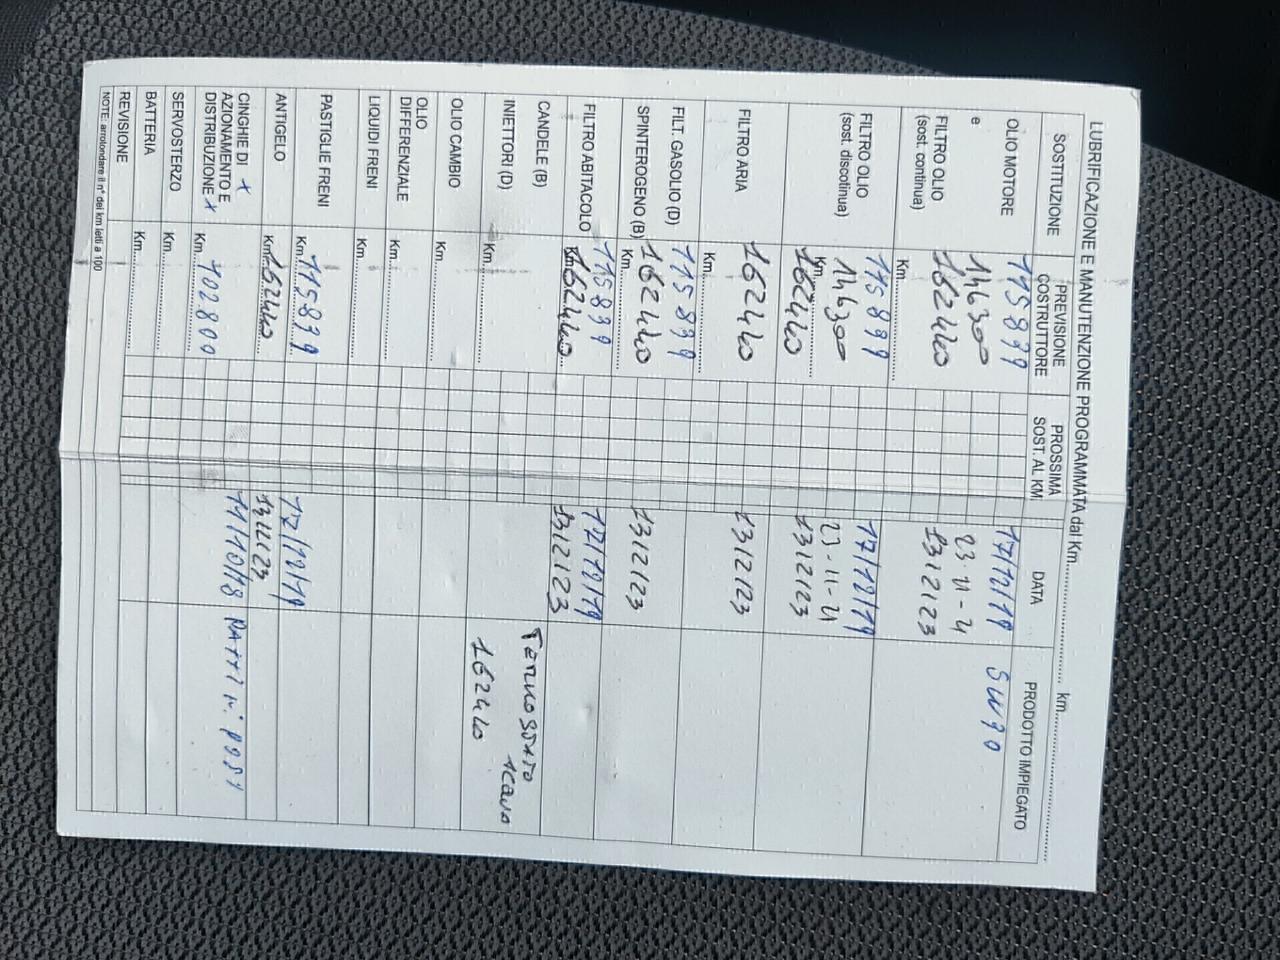 LUBRIFICAZIONE E MANUTENZIONE PROGRAMMATA dal Km............... km...............
SOSTITUZIONE PREVISIONE COSTRUTTORE PROSSIMA SOST. AL KM DATA PRODOTTO IMPIEGATO
OLIO MOTORE 115899 17/12/19 5W30
e 146300 23-11-21
FILTRO OLIO 162440 13/2/23
(sost. continua)
Km.
FILTRO OLIO 115899 17/12/19
(sost. discotinua) 146300 23-11-21
Km. 162440 13/2/23
FILTRO ARIA 162440 13/2/23
Km.
FILT. GASOLIO (D) 115899
SPINTEROGENO (B) 162440 13/2/23
Km.
FILTRO ABITACOLO 115899 17/12/19
Km. 162440 13/2/23
CANDELE (B) TERMOSTATO
INIETTORI (D) Km. 162440
OLIO CAMBIO Km.
OLIO
DIFFERENZIALE Km.
LIQUIDI FRENI Km.
PASTIGLIE FRENI Km. 115899 17/12/19
ANTIGELO Km. 162440 13/2/23
CINGHIE DI x
AZIONAMENTO E
DISTRIBUZIONE x Km. 102800 11/10/18
SERVOSTERZO Km.
BATTERIA Km.
REVISIONE
NOTE: arrotondare il n° dei km letti a 100